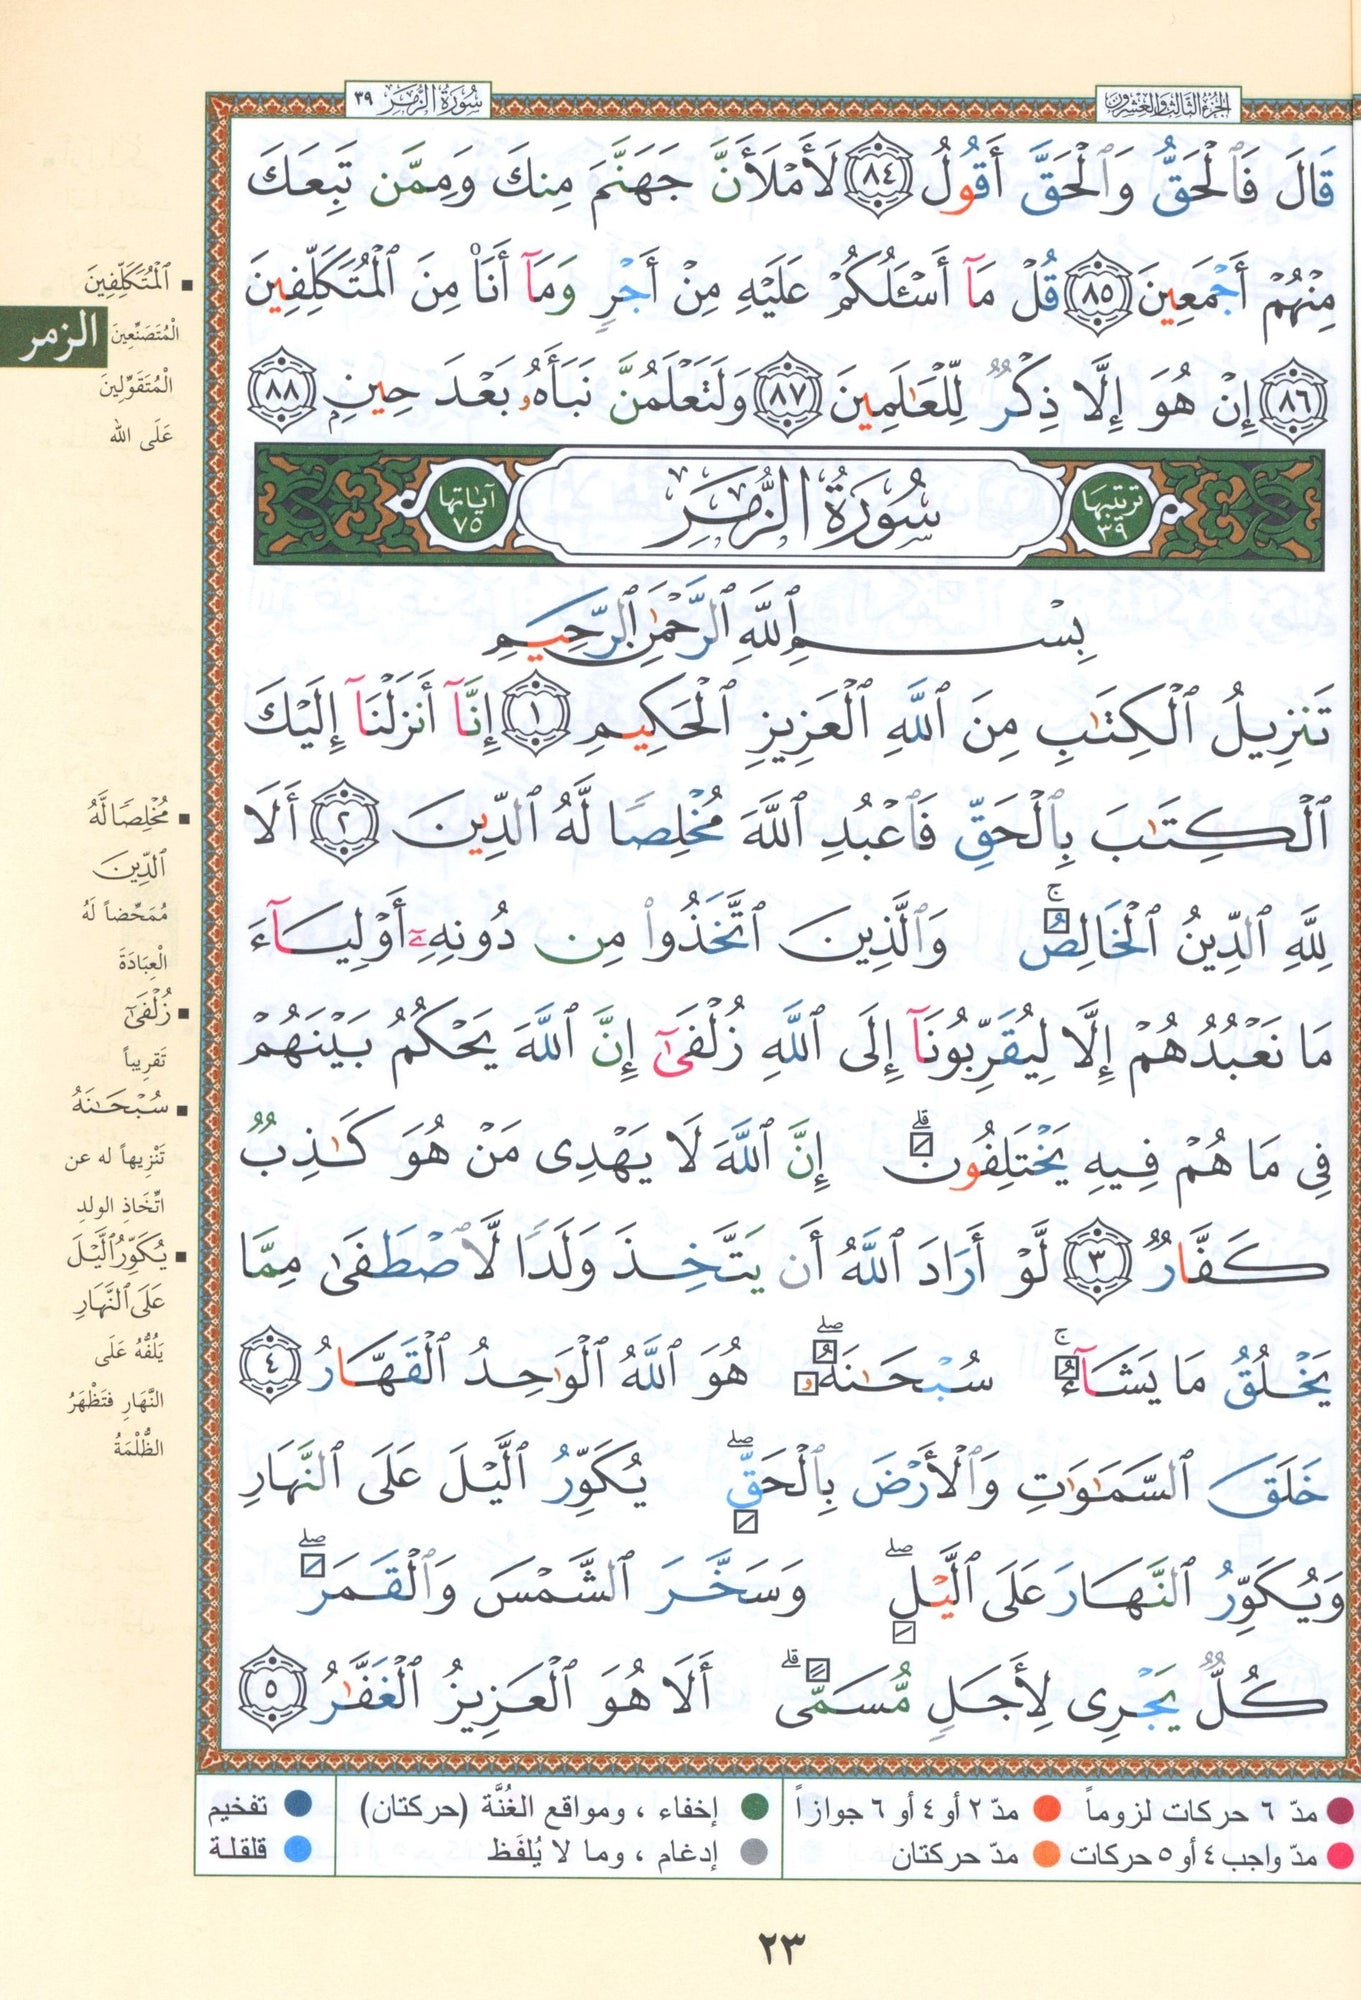 الجزء الثالث والعشرون
سُورَةُ الزُّمَرِ ٣٩
قَالَ فَٱلْحَقُّ وَٱلْحَقَّ أَقُولُ ٨٤ لَأَمْلَأَنَّ جَهَنَّمَ مِنكَ وَمِمَّن تَبِعَكَ
مِنْهُمْ أَجْمَعِينَ ٨٥ قُلْ مَآ أَسْـَٔلُكُمْ عَلَيْهِ مِنْ أَجْرٍ وَمَآ أَنَا۠ مِنَ ٱلْمُتَكَلِّفِينَ
٨٦ إِنْ هُوَ إِلَّا ذِكْرٌ لِّلْعَـٰلَمِينَ ٨٧ وَلَتَعْلَمُنَّ نَبَأَهُۥ بَعْدَ حِينِۭ ٨٨
ترتيبها ٣٩
سُورَةُ الزُّمَرِ
آياتها ٧٥
بِسْمِ ٱللَّهِ ٱلرَّحْمَـٰنِ ٱلرَّحِيمِ
تَنزِيلُ ٱلْكِتَـٰبِ مِنَ ٱللَّهِ ٱلْعَزِيزِ ٱلْحَكِيمِ ١ إِنَّآ أَنزَلْنَآ إِلَيْكَ
ٱلْكِتَـٰبَ بِٱلْحَقِّ فَٱعْبُدِ ٱللَّهَ مُخْلِصًا لَّهُ ٱلدِّينَ ٢ أَلَا
لِلَّهِ ٱلدِّينُ ٱلْخَالِصُ ۚ وَٱلَّذِينَ ٱتَّخَذُوا۟ مِن دُونِهِۦٓ أَوْلِيَآءَ
مَا نَعْبُدُهُمْ إِلَّا لِيُقَرِّبُونَآ إِلَى ٱللَّهِ زُلْفَىٰٓ إِنَّ ٱللَّهَ يَحْكُمُ بَيْنَهُمْ
فِى مَا هُمْ فِيهِ يَخْتَلِفُونَ ۗ إِنَّ ٱللَّهَ لَا يَهْدِى مَنْ هُوَ كَـٰذِبٌ
كَفَّارٌ ٣ لَّوْ أَرَادَ ٱللَّهُ أَن يَتَّخِذَ وَلَدًا لَّٱصْطَفَىٰ مِمَّا
يَخْلُقُ مَا يَشَآءُ ۚ سُبْحَـٰنَهُۥ ۖ هُوَ ٱللَّهُ ٱلْوَٰحِدُ ٱلْقَهَّارُ ٤
خَلَقَ ٱلسَّمَـٰوَٰتِ وَٱلْأَرْضَ بِٱلْحَقِّ ۖ يُكَوِّرُ ٱلَّيْلَ عَلَى ٱلنَّهَارِ
وَيُكَوِّرُ ٱلنَّهَارَ عَلَى ٱلَّيْلِ ۖ وَسَخَّرَ ٱلشَّمْسَ وَٱلْقَمَرَ ۖ
كُلٌّ يَجْرِى لِأَجَلٍ مُّسَمًّى ۗ أَلَا هُوَ ٱلْعَزِيزُ ٱلْغَفَّـٰرُ ٥
ٱلْمُتَكَلِّفِينَ
الْمُتَصَنِّعِينَ
الزمر
الْمُتَقَوِّلِينَ
عَلَى الله
مُخْلِصًا لَّهُ
ٱلدِّينَ
مُمَحِّضاً لَهُ
الْعِبَادَةَ
زُلْفَىٰٓ
تَقرِيباً
سُبْحَـٰنَهُ
تَنْزِيهاً له عن
اتِّخَاذِ الولدِ
يُكَوِّرُ ٱلَّيْلَ
عَلَى ٱلنَّهَارِ
يَلُفُّهُ عَلَى
النَّهارِ فتَظْهَرُ
الظُّلْمَةُ
مدّ ٦ حركات لزوماً
مدّ ٢ أو ٤ أو ٦ جوازاً
إخفاء ، ومواقع الغُنَّة (حركتان)
تفخيم
مدّ واجب ٤ أو ٥ حركات
مدّ حركتان
إدغام ، وما لا يُلفَظ
قلقلة
٢٣